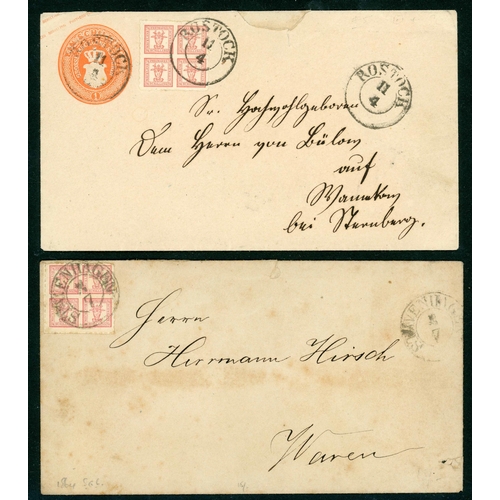 ROSTOCK
11
ROSTOCK
11
4
ROSTOCK
11
4
Sr. Hochwohlgeboren
Dem Herrn von Bülow
auf
bei Sternberg.
STAVENHAGEN
STAVENHAGEN
Herrn
Herrmann Hirsch
Waren